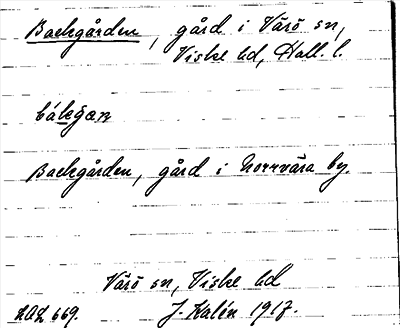 Backgården, gård i Värö sn,
Viske hd, Hall. l.
bákgan
Backgården, gård i Norrvära by.
Värö sn, Viske hd
LAL 669. J. Kalén 1917.